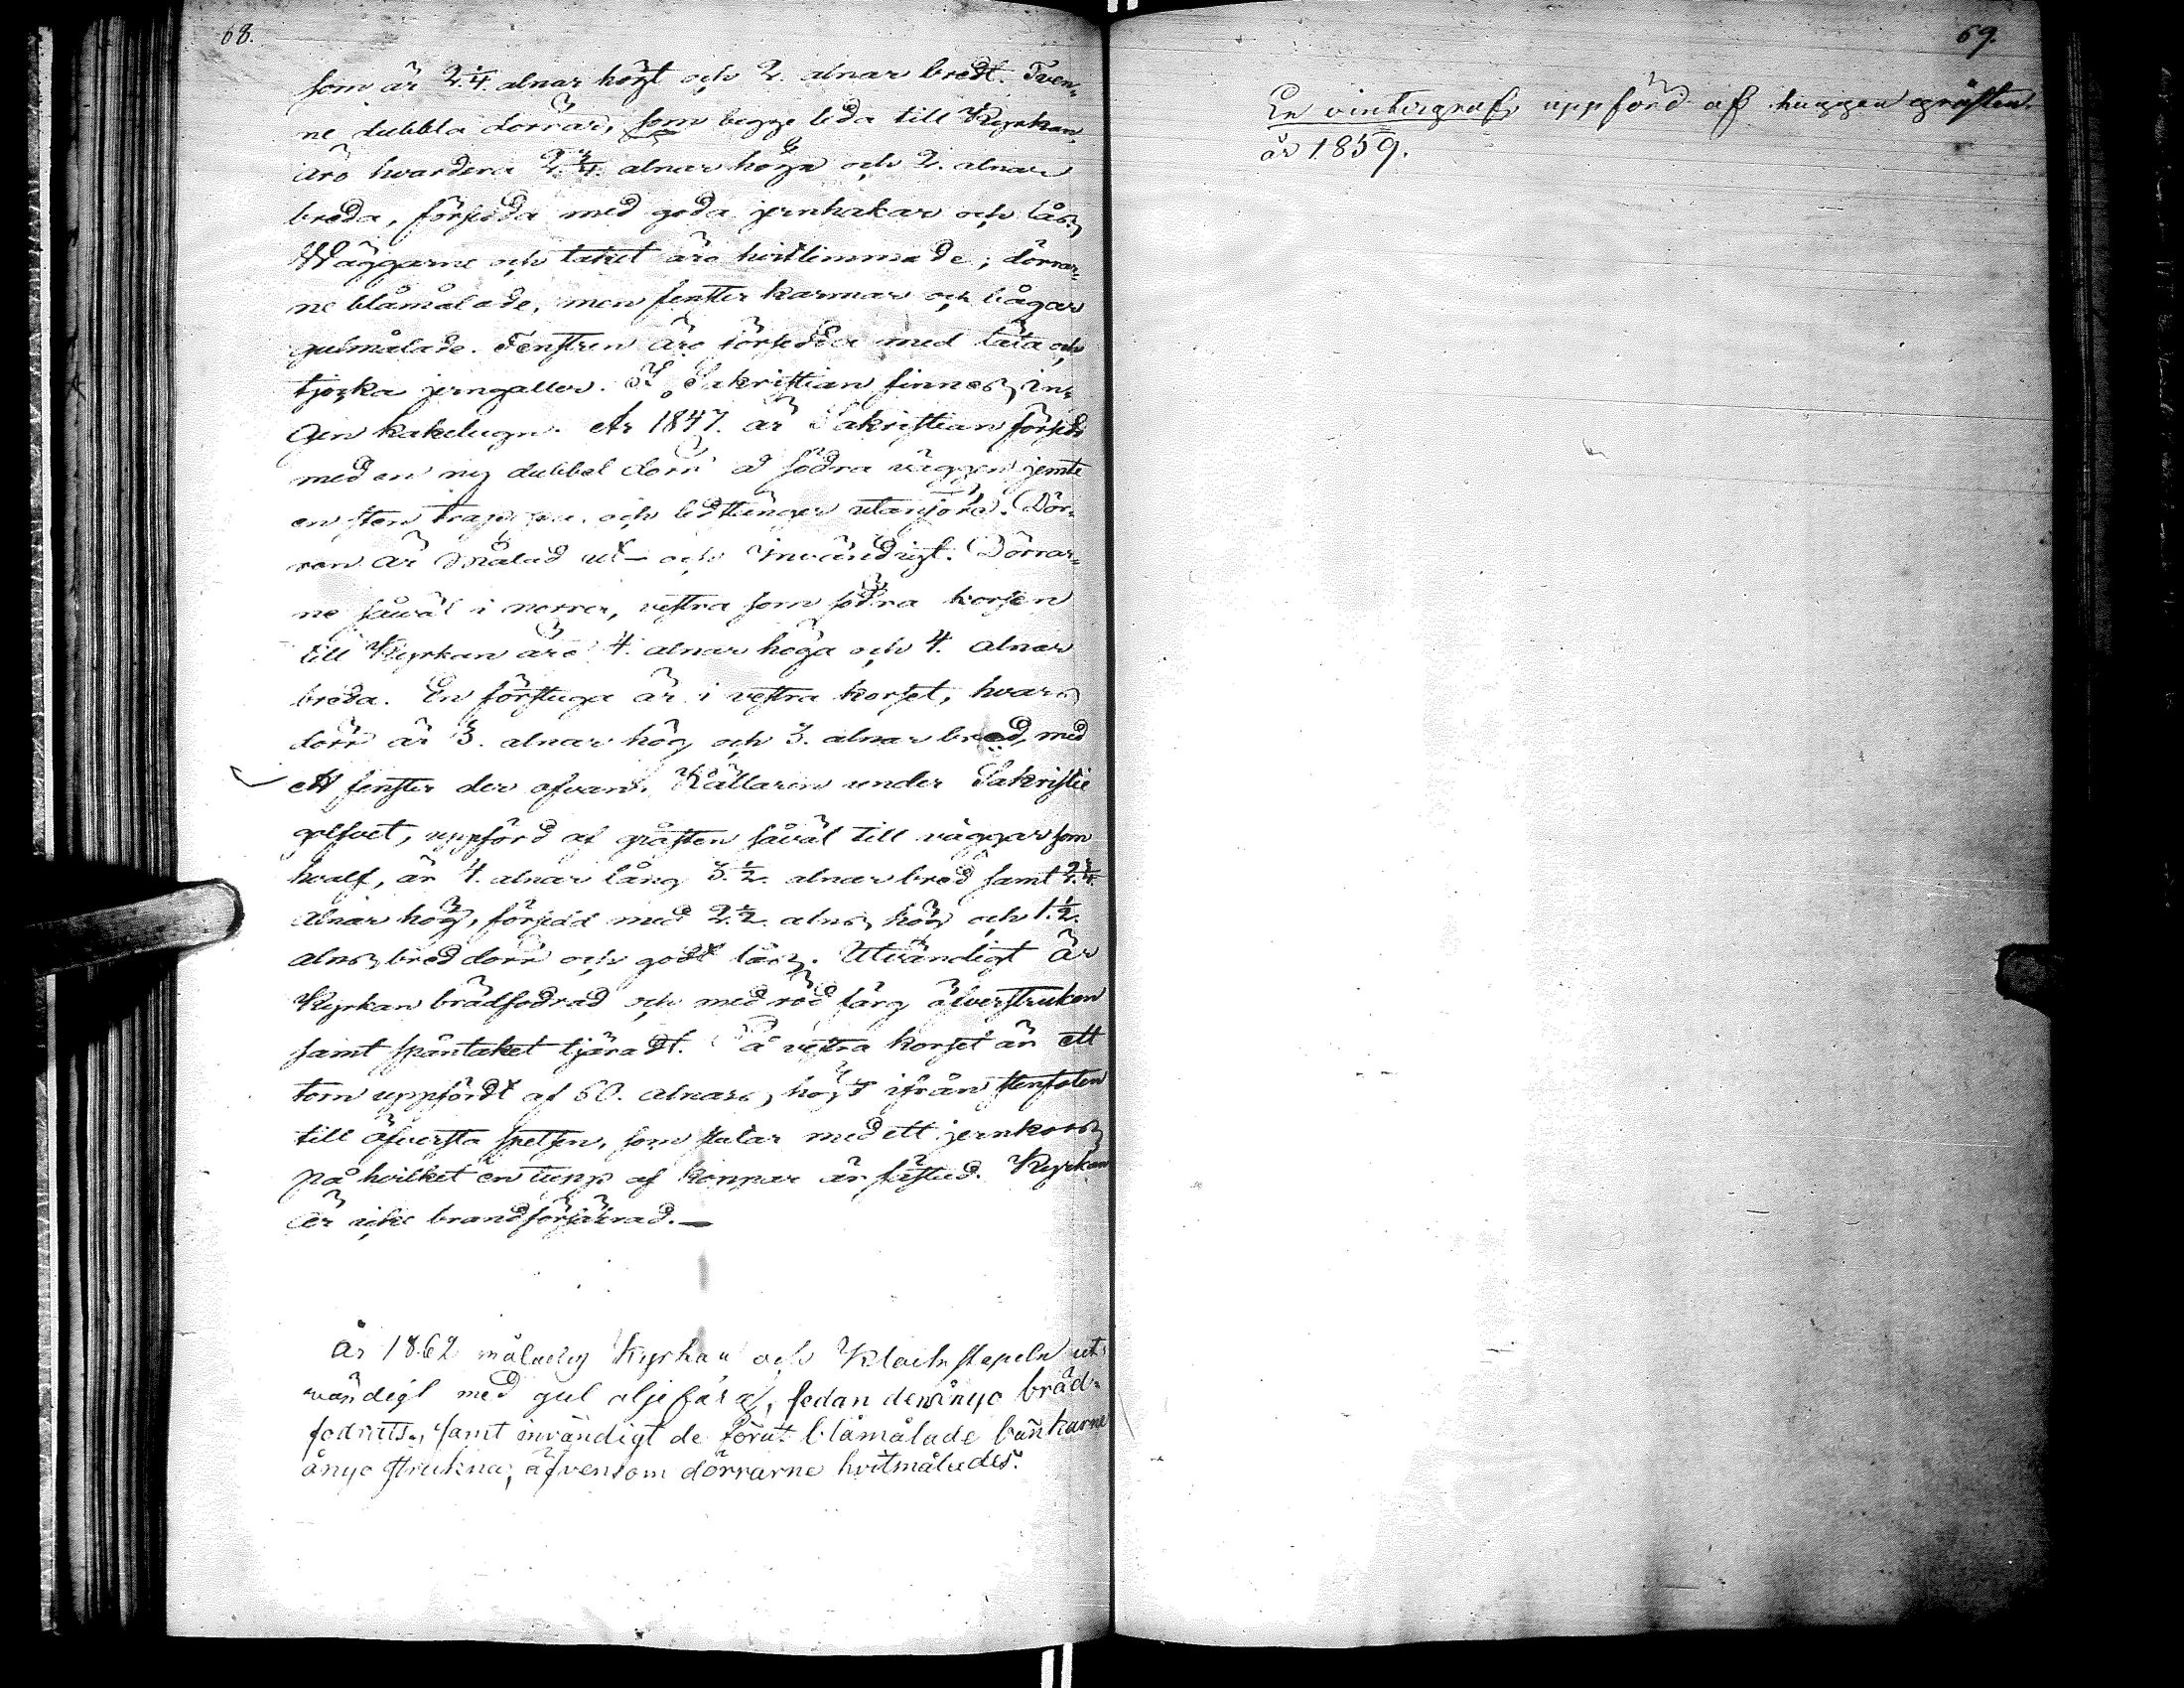 68.
som är 2.¼. alnar högt och 2. alnar bredt. Tven-
ne dubbla dörrar, som begge leda till Kyrkan,
äro hvardera 2.¾. alnar höga och 2. alnar
breda, försedda med goda jernhakar och lås.
Wäggarne och taket äro hvitlimmade; dörrar-
ne blåmålade, men fenster karmar och bågar
gulmålade. Fenstren äro försedda med täta och
tjocka jerngaller. I Sakristian finnes in-
gen kakelugn. År 1847. är Sakristian försedd
med en ny dubbel dörr å södra väggen jemte
en sten trappa och ledstänger utanföre. Dör-
ren är målad ut- och invändigt. Dörrar-
ne såväl i norra, vestra som södra korsen
till Kyrkan äro 4. alnar höga och 4. alnar
breda. En förstuga är i vestra korset, hvars
dörr är 3. alnar hög och 3. alnar bred, med
ett fenster der ofvan. Källaren under Sakristie
golfvet, uppförd af gråsten såväl till väggar som
hvalf, är 4. alnar lång 3.½. alnar bred samt 2.¼.
alnar hög, försedd med 2.½. alns hög och 1.½.
alns bred dörr och godt lås. Utvändigt är
Kyrkan brädfodrad och med röd färg öfverstruken
samt spåntaket tjäradt. På vestra korset är ett
torn uppfördt af 60. alnars höjd ifrån stenfoten
till öfversta spetsen, som slutar med ett jernkors
på hvilket en tupp af koppar är fästad. Kyrkan
är icke brandförsäkrad.—
År 1862 målades Kyrkan och Klockstapeln ut-
vändigt med gul oljefärg, sedan den ånyo bräd-
fodrats, samt invändigt de förut blåmålade bänkarne
ånyo strukna, äfvensom dörrarne hvitmålades.
69.
En vintergraf uppförd af huggen gråsten
år 1859.